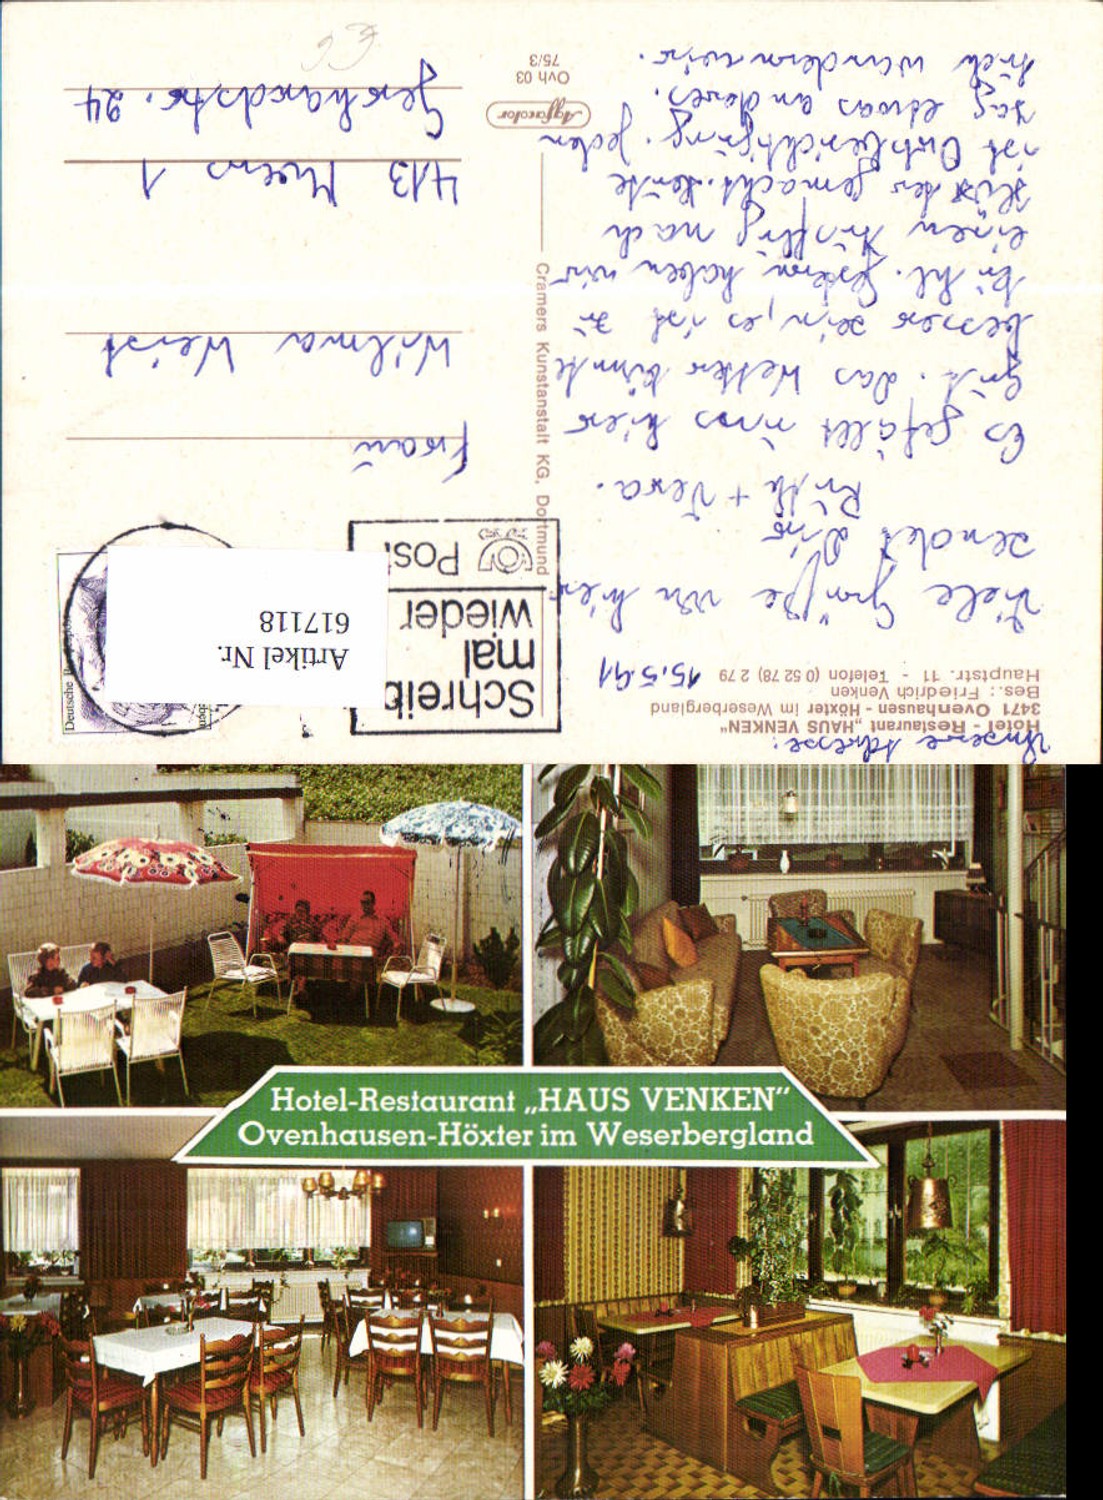 Unsere Adresse:
Hotel - Restaurant „HAUS VENKEN“
3471 Ovenhausen - Höxter im Weserbergland
Bes.: Friedrich Venken
Hauptstr. 11 - Telefon (0 52 78) 2 79
15.5.91
Viele Grüße von hier
sendet Dir
Ruth + Vera.
Es gefällt uns hier
gut. Das Wetter könnte
besser sein, es ist zu
kühl. Gestern haben wir
einen Ausflug nach
Höxter gemacht. Heute
ist Ortsbesichtigung. Jeden
Tag etwas anderes.
Auch wandern wir.
Schreib
mal
wieder
Post
Deutsche
Artikel Nr.
617118
Cramers Kunstanstalt KG, Dortmund
Agfacolor
Ovh 03
75/3
Frau
Wilma Weist
413 Moers 1
Gerhardstr. 24
Hotel-Restaurant „HAUS VENKEN“
Ovenhausen-Höxter im Weserbergland